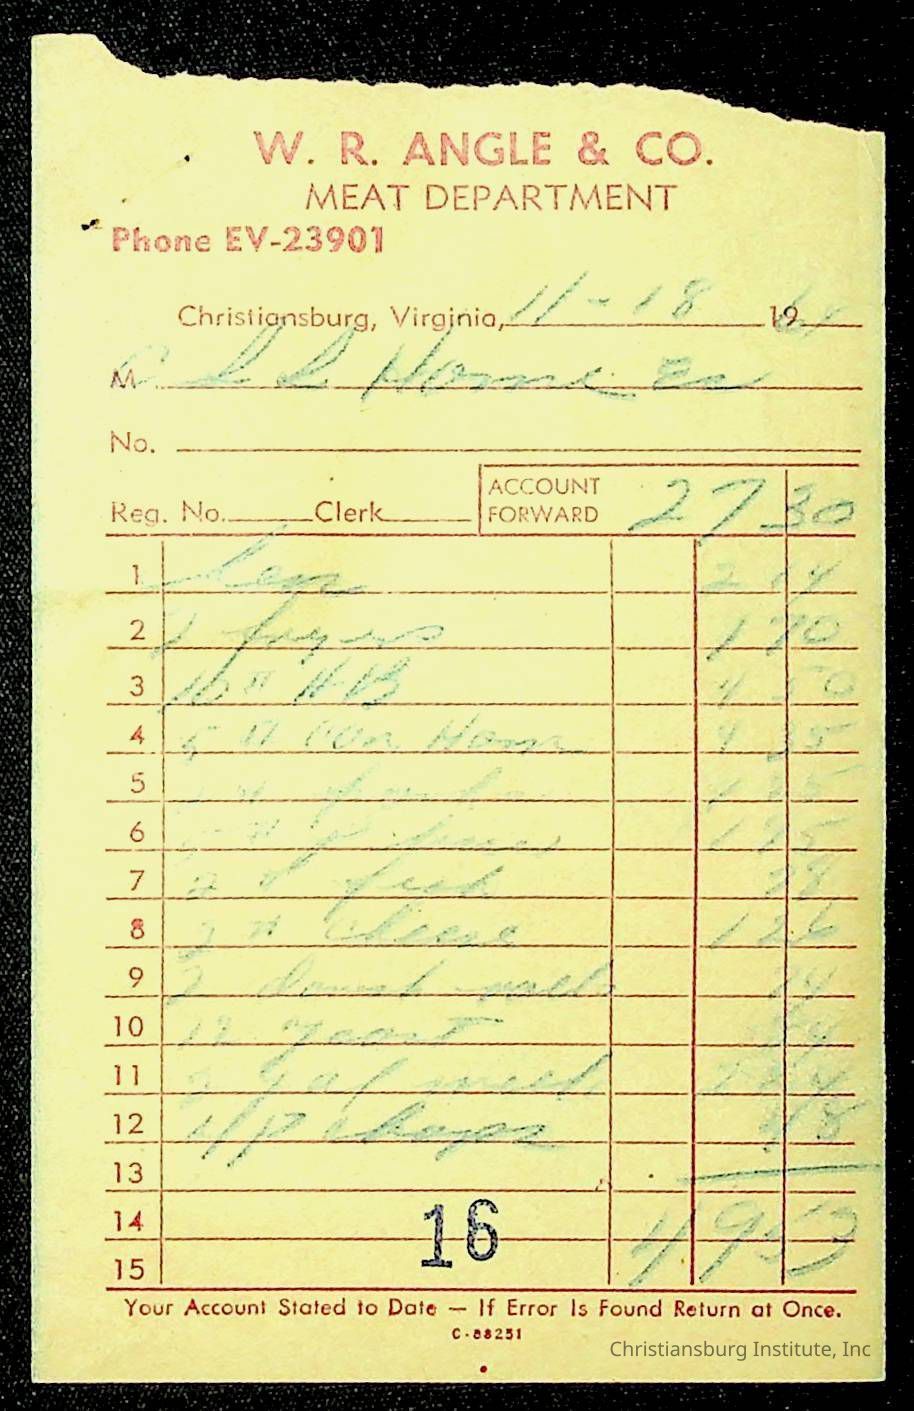 W. R. ANGLE & CO.
MEAT DEPARTMENT
Phone EV-23901
Christiansburg, Virginia, 11-18 1964
M C. I. I. Home Ec
No.
Reg. No. Clerk ACCOUNT FORWARD 27 30
1 Hen 2 14
2 fryers 1 70
3 10# HB 4 50
4 5 # Can Ham 4 35
5 #
6 # 1 95
7 2 # fish 58
8 2 # Cheese 1 26
9 2 milk
10 12 Yeast 84
11 gal milk
12 4 P Chops 48
13
14 16 49 53
15
Your Account Stated to Date — If Error Is Found Return at Once.
C-88251
Christiansburg Institute, Inc